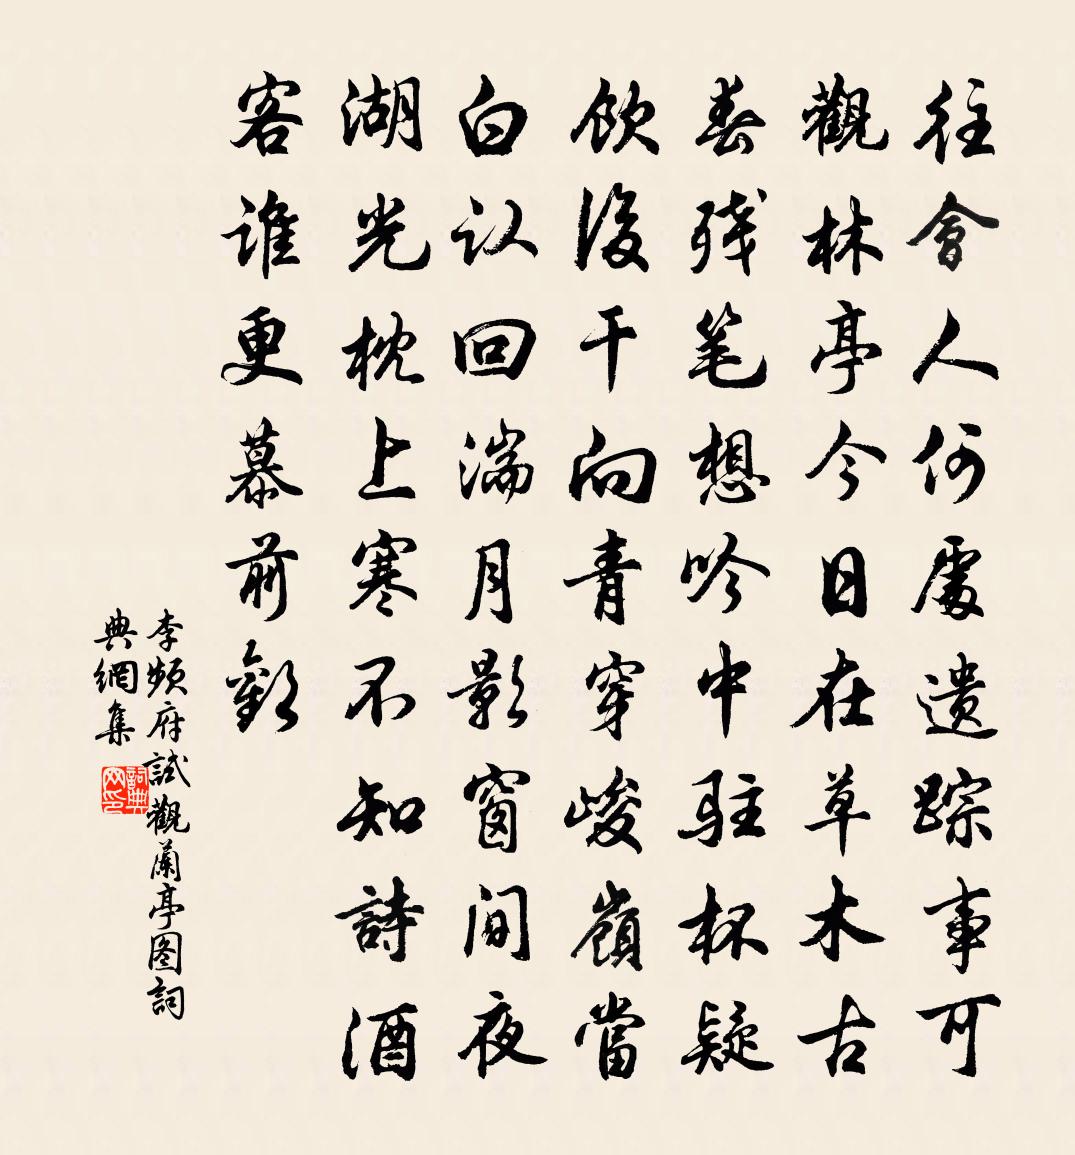 往會人何處遺踪事可
觀林亭今日在草木古
春残笔想吟中駐杯疑
飲後干向青穿峻嶺當
白认回湍月影窗间夜
湖光枕上寒不知詩酒
客谁更慕前歡
李頻府試觀蘭亭图詞
典網集
詞典
网印